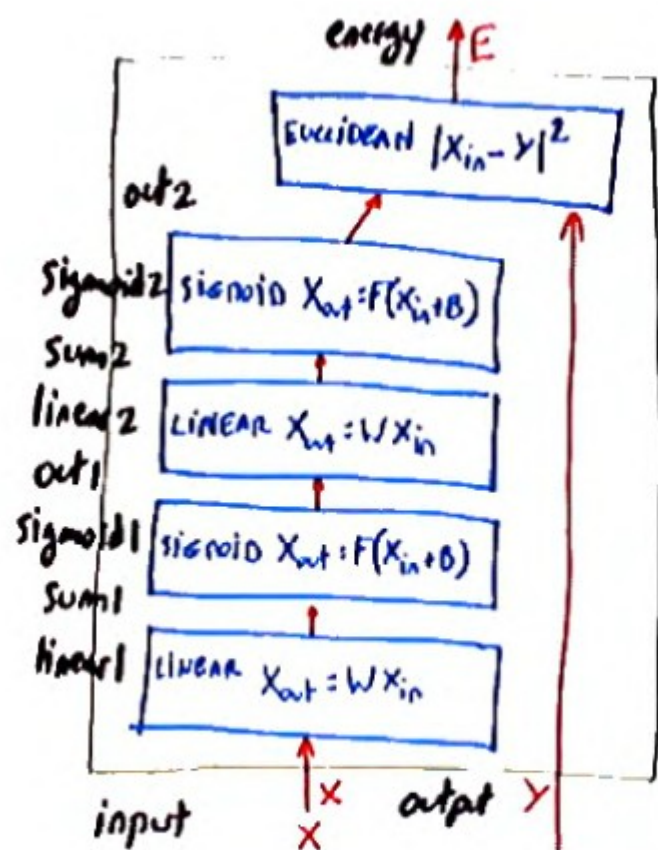 energy E
EUCLIDEAN |Xin - Y|²
act2
sigmoid2 SIGMOID Xout = F(Xin+B)
sum2
linear2 LINEAR Xout = WXin
act1
sigmoid1 SIGMOID Xout = F(Xin+B)
sum1
linear1 LINEAR Xout = WXin
input X X output Y